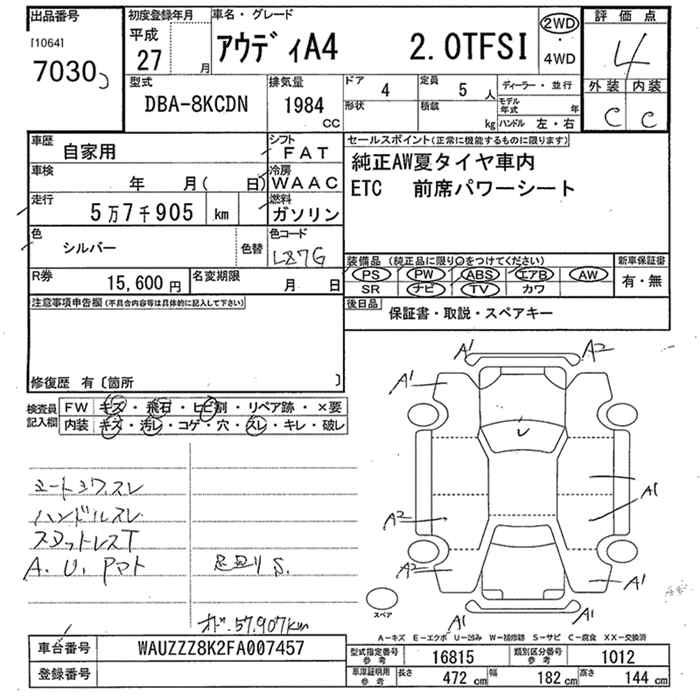 出品番号
[1064]
7030
初度登録年月
平成
27 月
車名・グレード
アウディA4 2.0TFSI
2WD
・
4WD
評価点
4
外装 内装
C C
型式
DBA-8KCDN
排気量
1984
CC
ドア 4
形状
定員 5 人
積載 kg
ディーラー・並行
モデル年式 年
ハンドル 左・右
車歴
自家用
シフト
FAT
車検
年 月( 日)
冷房
WAAC
走行
5万7千905 km
燃料
ガソリン
色
シルバー
色替
色コード
LZ7G
R券
15,600 円
名変期限
月 日
セールスポイント(正常に機能するものに限ります)
純正AW夏タイヤ車内
ETC 前席パワーシート
装備品 (純正品に限り〇をつけてください)
PS PW ABS エアB AW
SR ナビ TV カワ
新車保証書
有・無
後日品
保証書・取説・スペアキー
注意事項申告欄(不具合内容等は具体的に記入して下さい)
修復歴 有〔箇所 〕
検査員
記入欄
FW キズ・飛石・ヒビ割・リペア跡・×要
内装 キズ・汚レ・コゲ・穴・スレ・キレ・破レ
シートシワ.スレ
ハンドルスレ
スタットレスT
A.U.Pマト
足回りS.
オド.57.907km
A1 A2
A1
A2
A1
A2
A1
A1
A1
スペア
A-キズ E-エクボ U-凹み W-補修跡 S-サビ C-腐食 XX-交換済
車台番号
WAUZZZ8K2FA007457
登録番号
型式指定番号
参考
16815
類別区分番号
参考
1012
車庫証明用
参考
長さ 472 cm
幅 182 cm
高さ 144 cm